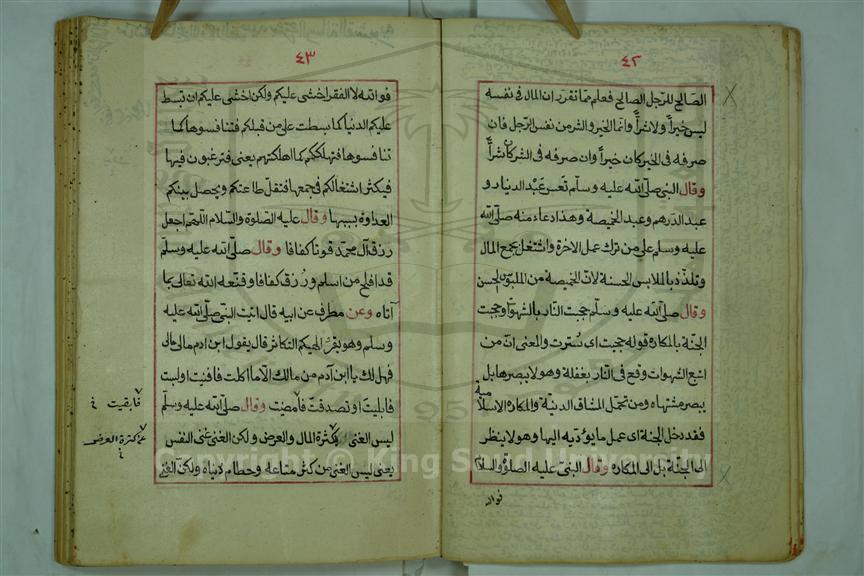 ٤٢
الصالح للرجل الصالح فعلم مما تقرر ان المال فى نفسه
ليس خيراً ولا شراً وانما الخير والشر من نفس الرجل فان
صرفه فى الخير كان خيراً وان صرفه فى الشر كان شراً
وقال النبى صلى الله عليه وسلم تعس عبد الدينار و
عبد الدرهم وعبد الخميصة وهذا دعاء منه صلى الله
عليه وسلم على من ترك عمل الاخرة واشتغل بجمع المال
وتلذذ بالملابس الحسنة لان الخميصة من الملبوس الحسن
وقال صلى الله عليه وسلم حجبت النار بالشهوات وحجبت
الجنة بالمكاره قوله حجبت اى سترت والمعنى ان من
اتبع الشهوات وقع فى النار بغفلة وهو لا يبصرها بل
يبصر مشتهاه ومن تحمل المشاق الدينية والمكاره الاسلامية
فقد دخل الجنة اى عمل ما يؤديه اليها وهو لا ينظر
الى الجنة بل الى المكاره وقال النبى عليه الصلوة والسلام
فوالله
٤٣
فوالله لا الفقر اخشى عليكم ولكن اخشى عليكم ان تبسط
عليكم الدنيا كما بسطت على من قبلكم فتنافسوها كما
تنافسوها فتهلككم كما اهلكتهم يعنى فترغبون فيها
فيكثر اشتغالكم فى جمعها فتقل طاعتكم ويحصل بينكم
العداوة بسببها وقال عليه الصلوة والسلام اللهم اجعل
رزق آل محمد قوتا كفافا وقال صلى الله عليه وسلم
قد افلح من اسلم ورزق كفافا وقنعه الله تعالى بما
آتاه وعن مطرف عن ابيه قال اتيت النبى صلى الله عليه
وسلم وهو يقرأ الهيكم التكاثر قال يقول ابن ادم مالى مالى
فهل لك يا ابن آدم من مالك الا ما اكلت فافنيت او لبست
فابليت او تصدقت فامضيت وقال صلى الله عليه وسلم
ليس الغنى بكثرة المال والعرض ولكن الغنى غنى النفس
يعنى ليس الغنى من كثر متاعه وحطام دنياه ولكن الغنى
فابقيت
عن كثرة العرض
Copyright © King Saud University